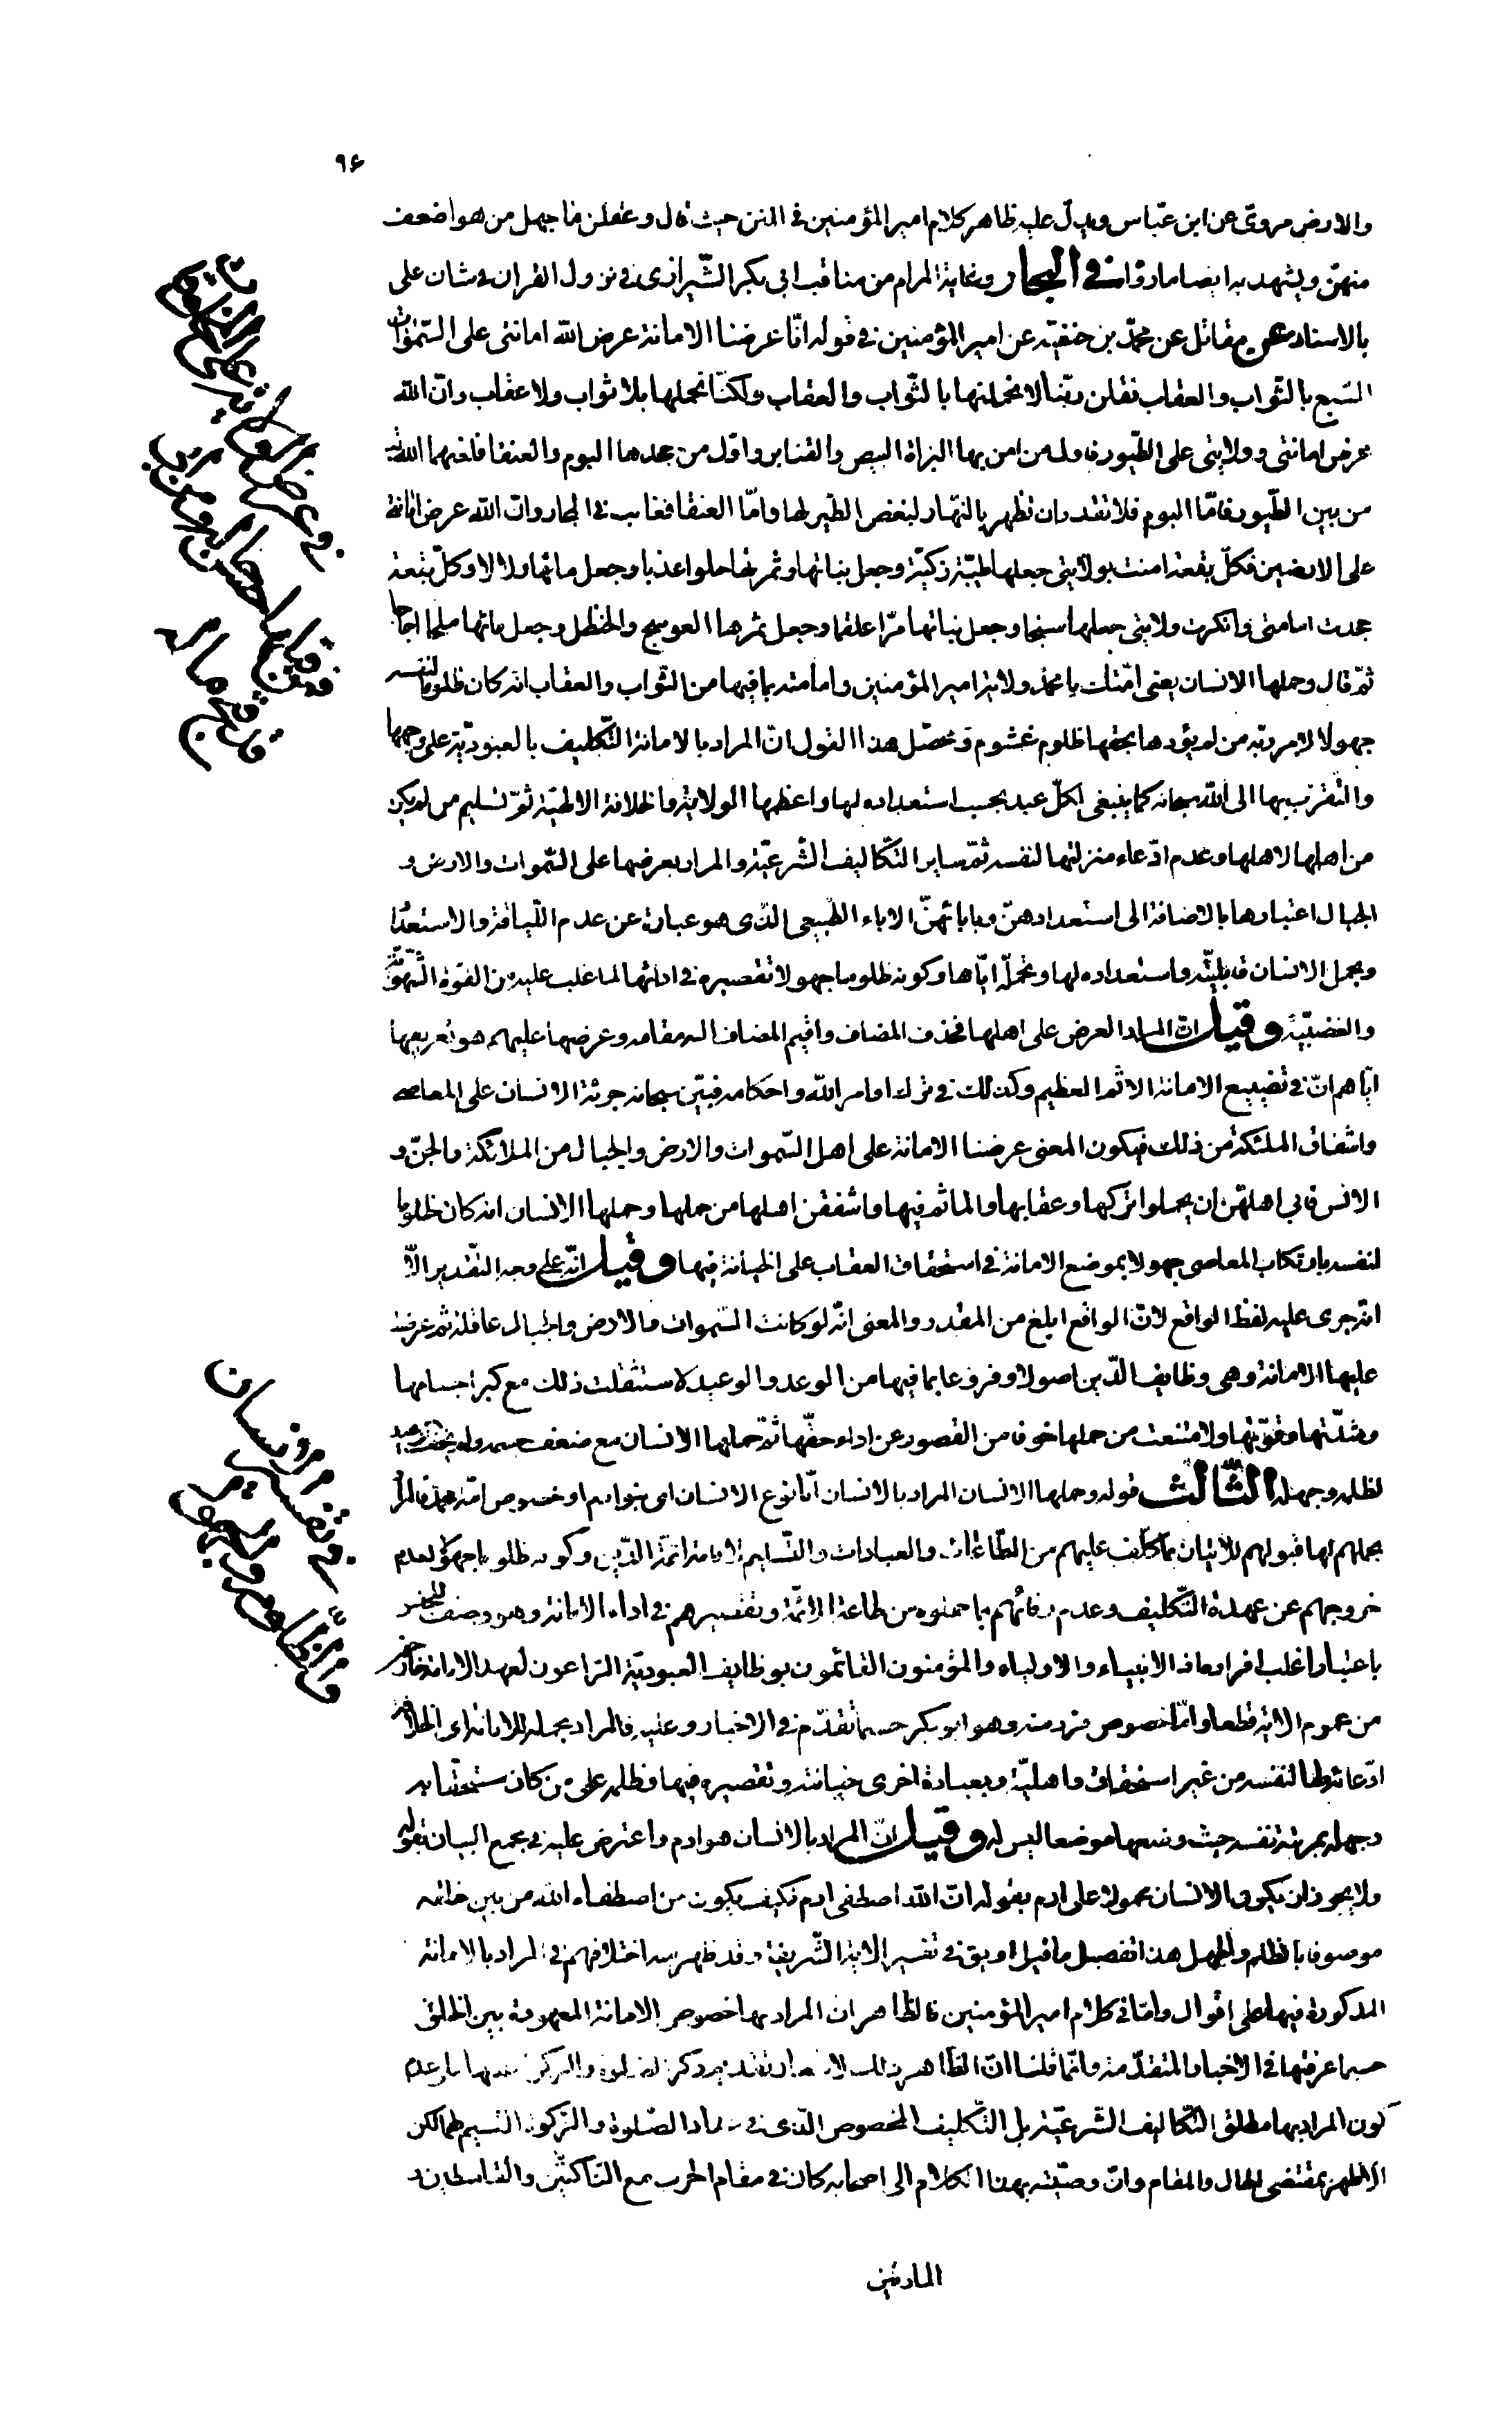 ٩۶
والارض مروىّ عن ابن عبّاس ويدلّ عليه ظاهر كلام امير المؤمنين فى المتن حيث قال وعقلن ما جهل من هو اضعف
منهنّ ويشهد به ايضا ما رواه فى البحار وغاية المرام من مناقب ابى بكر الشّيرازى فى نزول القران فى شان على
بالاسناد عن مقاتل عن محمّد بن حنفيّه عن امير المؤمنين فى قوله انّا عرضنا الامانة عرض الله امانتى على السّموات
السّبع بالثّواب والعقاب فقلن ربّنا لا نحملنها بالثّواب والعقاب ولكنّا نحملها بلا ثواب ولا عقاب وانّ الله
عرض امانتى وولايتى على الطّيور فاول من امن بها البزاة البيض والقنابر واوّل من جحدها البوم والعنقا فلعنهما الله
من بين الطّيور فامّا البوم فلا تقدر ان تظهر بالنّهار لبغض الطّير لها وامّا العنقا فغابت فى البحار وانّ الله عرض امانتى
على الارضين فكلّ بقعة امنت بولايتى جعلها طيّبة زكيّة وجعل نباتها وثمرتها حلوا عذبا وجعل ماءها زلالا وكلّ بقعة
جحدت امامتى وانكرت ولايتى جعلها سبخا وجعل نباتها مرّا علقما وجعل ثمرها العوسج والحنظل وجعل ماءها ملحا اجاجا
ثمّ قال وحملها الانسان يعنى امّتك يا محمّد ولاية امير المؤمنين وامامته بما فيها من الثّواب والعقاب انّه كان ظلوما لنفسه
جهولا لامر ربّه من لم يؤدها بحقّها ظلوم غشوم ومحصّل هذا القول انّ المراد بالامانة التّكليف بالعبوديّة على وجهها
والتّقرّب بها الى الله سبحانه كما ينبغى لكلّ عبد بحسب استعداده لها واعظمها الولاية والخلافة الالهيّة ثمّ تسليم من لم يكن
من اهلها لاهلها وعدم ادّعاء منزلتها لنفسه ثمّ ساير التّكاليف الشّرعيّة والمراد بعرضها على السّموات والارض و
الجبال اعتبارها بالاضافة الى استعدادهنّ وبابائهنّ الاباء الطّبيعى الّذى هو عبارة عن عدم اللّياقة والاستعداد
وبحمل الانسان قابليّته واستعداده لها وتحمّله ايّاها وكونه ظلوما جهولا تقصيره فى ادائها لما غلب عليه من القوّة الشّهويّة
والغضبيّة وقيل انّ المراد العرض على اهلها فحذف المضاف واقيم المضاف اليه مقامه وعرضها عليهم هو تعريفها
ايّاهم انّ فى تضييع الامانة الاثم العظيم وكذلك فى ترك اوامر الله واحكامه فبيّن سبحانه جرئة الانسان على المعاصى
واشفاق الملئكة من ذلك فيكون المعنى عرضنا الامانة على اهل السّموات والارض والجبال من الملائكة والجنّ و
الانس فابى اهلهنّ ان يحملوا تركها وعقابها والماثم فيها واشفقن اهلها من حملها وحملها الانسان انه كان ظلوما
لنفسه بارتكاب المعاصى جهولا بموضع الامانة فى استحقاق العقاب على الخيانة فيها وقيل انّه على وجه التّقدير الّا
انّه جرى عليه لفظ الواقع لانّ الواقع ابلغ من المقدر والمعنى انّه لو كانت السّموات والارض والجبال عاقلة ثمّ عرضت
عليها الامانة وهى وظايف الدّين اصولا وفروعا بما فيها من الوعد والوعيد لاستثقلت ذلك مع كبر اجسامها
وشدّتها وقوّتها ولامتنعت من حملها خوفا من القصور عن اداء حقّها ثمّ حملها الانسان مع ضعف جسمه ولم يخف الوعيد
لظلمه وجهله الثّالث قوله وحملها الانسان المراد بالانسان امّا نوع الانسان اى بنو ادم او خصوص امّة محمّد فالمراد
بحملهم لها قبولهم للاتيان بما كلّف عليهم من الطّاعات والعبادات والتّسليم لامامة ائمّة الدّين وكونه ظلوما جهولا لعدم
خروجهم عن عهدة التّكليف وعدم وفائهم بما حملوه من طاعة الائمّة وتقصيرهم فى اداء الامانة وهو وصف للجنس
باعتبار اغلب افراده اذ الانبياء والاولياء والمؤمنون القائمون بوظايف العبوديّة الرّاعون لعهد الامانة خارجون
من عموم الاية قطعا وامّا خصوص فرد منه وهو ابو بكر حسبما تقدّم فى الاخبار وعليه فالمراد بحمله للامانة اى الخلافة
ادّعائه لها لنفسه من غير استحقاق واهليّة وبعبارة اخرى خيانته وتقصيره فيها وظلمه على من كان مستحقّا به
وجهله بمرتبة نفسه حيث وضعها موضعا ليس له وقيل انّ المراد بالانسان هو ادم واعترض عليه فى مجمع البيان بقوله
ولا يجوز ان يكون الانسان محمولا على ادم بقوله انّ الله اصطفى ادم فكيف يكون من اصطفاه الله من بين خلقه
موصوفا بالظلم والجهل هذا تفصيل ما قيل او يق فى تفسير الاية الشّريفة وقد ظهر منه اختلافهم فى المراد بالامانة
المذكورة فيها على اقوال وامّا فى كلام امير المؤمنين فالظاهر ان المراد بها خصوص الامانة المعهودة بين الخلق
حسبما عرفتها فى الاخبار المتقدّمة وانّما قلنا انّ الظاهر ذلك
كون المراد بها مطلق التّكاليف الشّرعيّة بل التّكليف المخصوص الّذى فى عداد الصّلوة والزّكوة القسيم لهما لكن
الاظهر بمقتضى الحال والمقام وانّ وصيّته بهذا الكلام الى اصحابه كان فى مقام الحرب مع النّاكثين والقاسطين و
المارقين